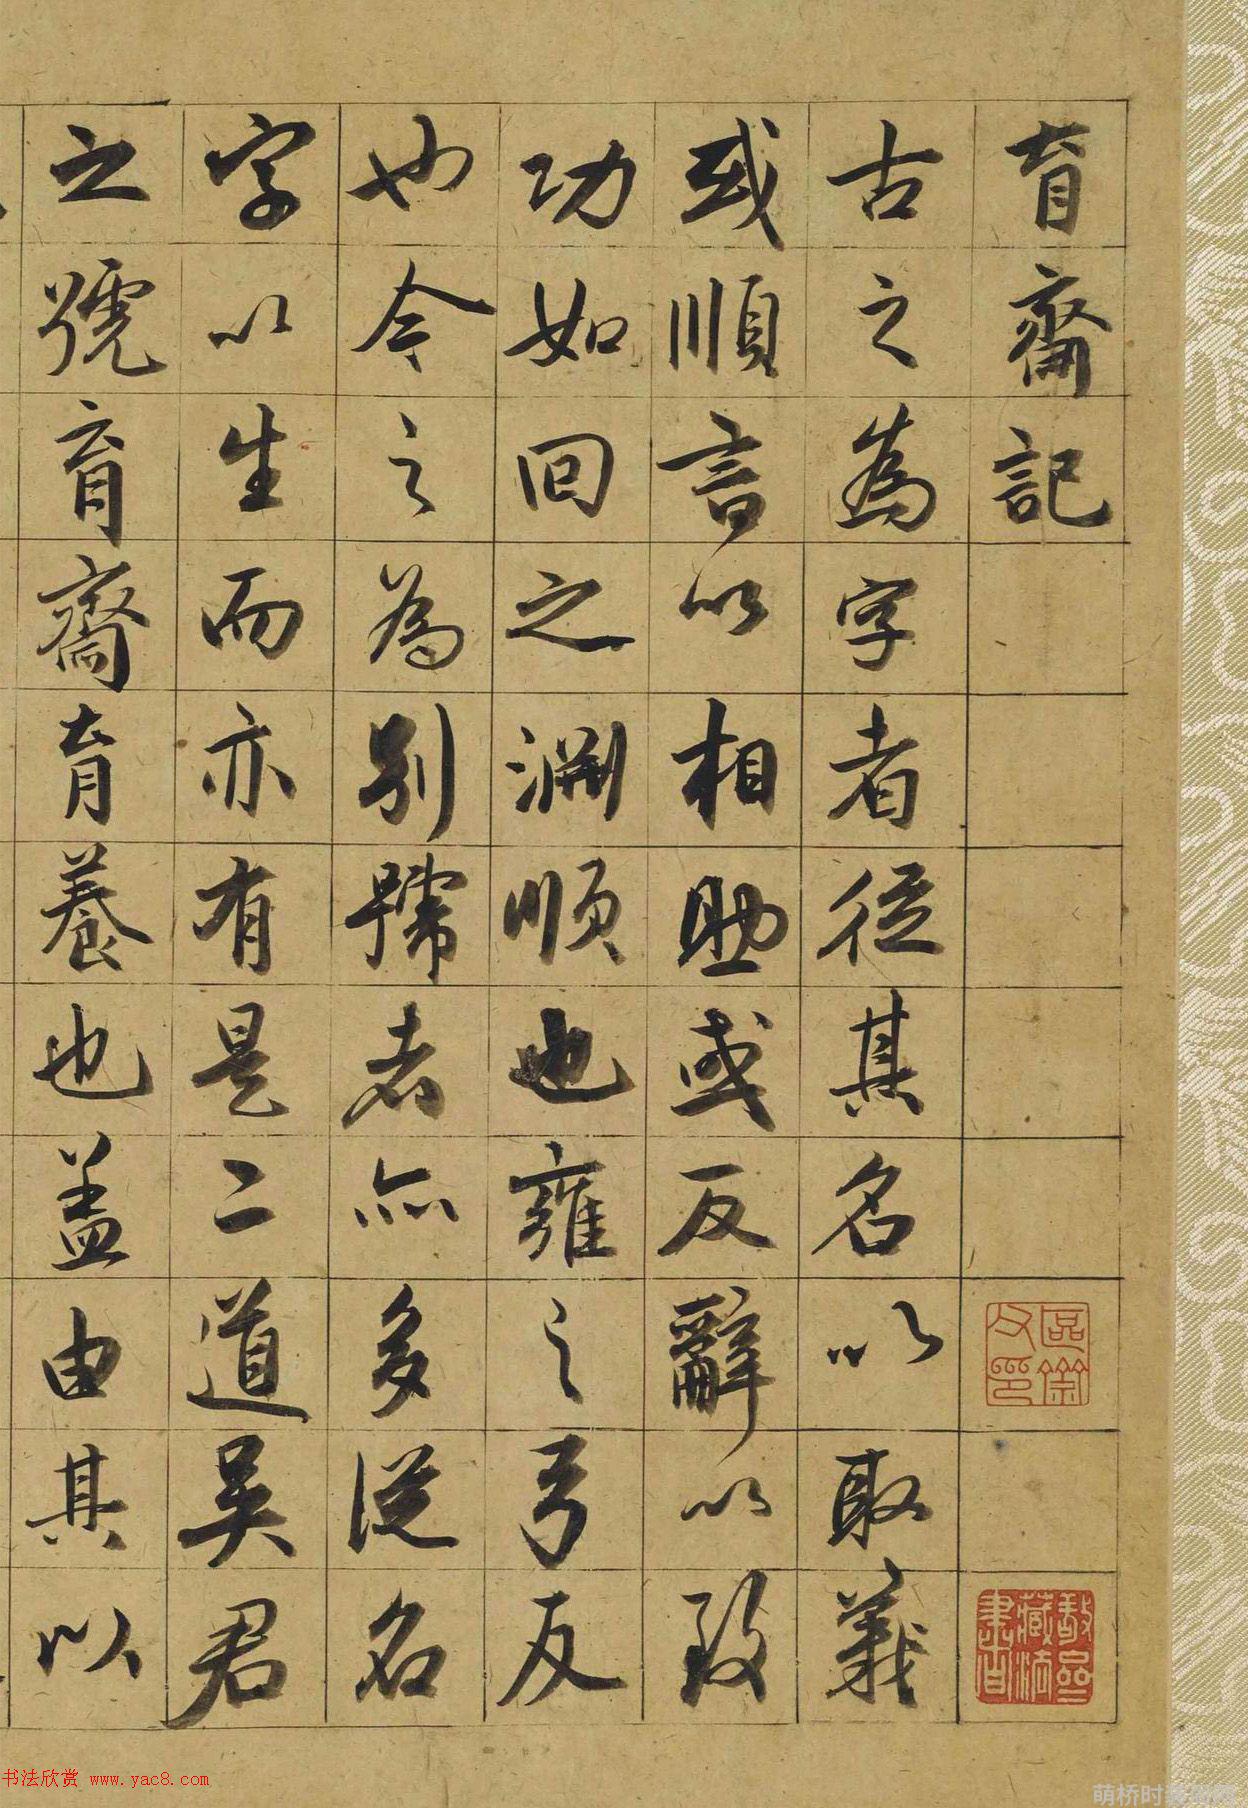 育齋記
古之為字者從其名以取義
或順言以相助或反辭以致
功如回之淵順也雍之弓反
也今之為別號者亦多從名
字以生而亦有是二道吳君
之號育齋育養也蓋由其以
书法欣赏 www.yac8.com